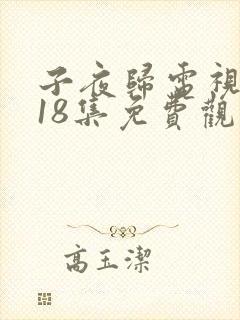 子夜歸電視
18集免費觀
高玉潔